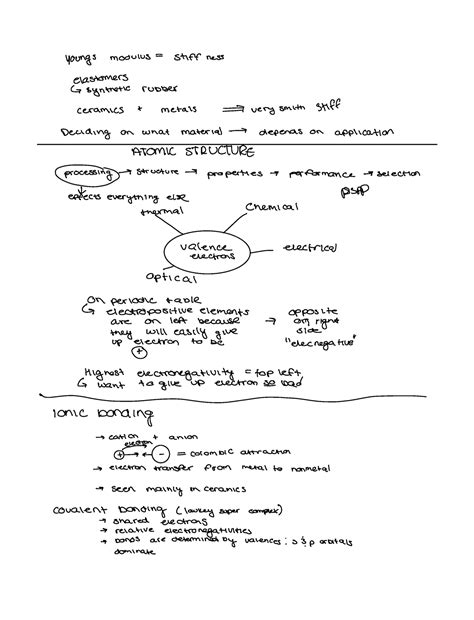 Youngs modulus = stiffness
elastomers
↳ synthetic rubber
ceramics + metals ⟹ very smith stiff
Deciding on what material → depends on application
ATOMIC STRUCTURE
processing → structure → properties → performance → selection
effects everything else
pspp
thermal
Chemical
valence
electrons
electrical
optical
On periodic table
↳ electropositive elements
are on left because
they will easily give
up electron to be
+
→ opposite
on right
side
"elecnegative"
Highest electronegativity = top left
↳ want to give up electron so bad
Ionic bonding
→ cation + anion
electron
+ → ← - = colombic attraction
→ electron transfer from metal to nonmetal
→ seen mainly in ceramics
covalent bonding (lowkey super complex)
→ shared electrons
→ relative electronegativities
→ bonds are determined by valences; s & p orbitals
dominate